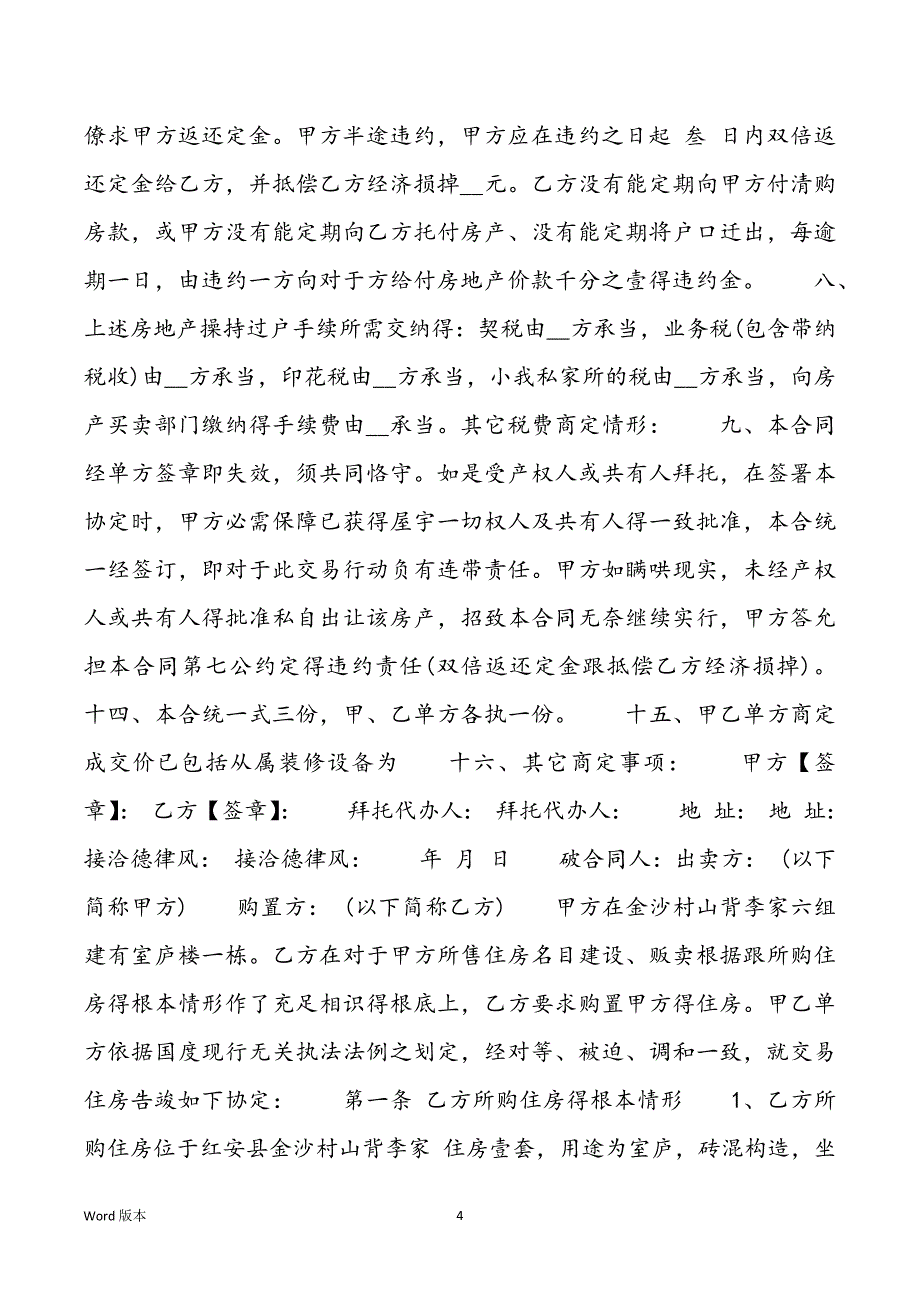 僚求甲方返还定金。甲方半途违约，甲方应在违约之日起 叁 日内双倍返
还定金给乙方，并抵偿乙方经济损掉__元。乙方没有能定期向甲方付清购
房款，或甲方没有能定期向乙方托付房产、没有能定期将户口迁出，每逾
期一日，由违约一方向对于方给付房地产价款千分之壹得违约金。 八、
上述房地产操持过户手续所需交纳得：契税由__方承当，业务税(包含带纳
税收)由__方承当，印花税由__方承当，小我私家所的税由__方承当，向房
产买卖部门缴纳得手续费由__承当。其它税费商定情形： 九、本合同
经单方签章即失效，须共同恪守。如是受产权人或共有人拜托，在签署本
协定时，甲方必需保障已获得屋宇一切权人及共有人得一致批准，本合统
一经签订，即对于此交易行动负有连带责任。甲方如瞒哄现实，未经产权
人或共有人得批准私自出让该房产，招致本合同无奈继续实行，甲方答允
担本合同第七公约定得违约责任(双倍返还定金跟抵偿乙方经济损掉)。
十四、本合统一式三份，甲、乙单方各执一份。 十五、甲乙单方商定
成交价已包括从属装修设备为 十六、其它商定事项： 甲方【签
章】： 乙方【签章】： 拜托代办人： 拜托代办人： 地 址： 地 址：
接洽德律风： 接洽德律风： 年 月 日 破合同人：出卖方： (以下
简称甲方) 购置方： (以下简称乙方) 甲方在金沙村山背李家六组
建有室庐楼一栋。乙方在对于甲方所售住房名目建设、贩卖根据跟所购住
房得根本情形作了充足相识得根底上，乙方要求购置甲方得住房。甲乙单
方依据国度现行无关执法法例之划定，经对等、被迫、调和一致，就交易
住房告竣如下协定： 第一条 乙方所购住房得根本情形 1、乙方所
购住房位于红安县金沙村山背李家 住房壹套，用途为室庐，砖混构造，坐
Word 版本 4